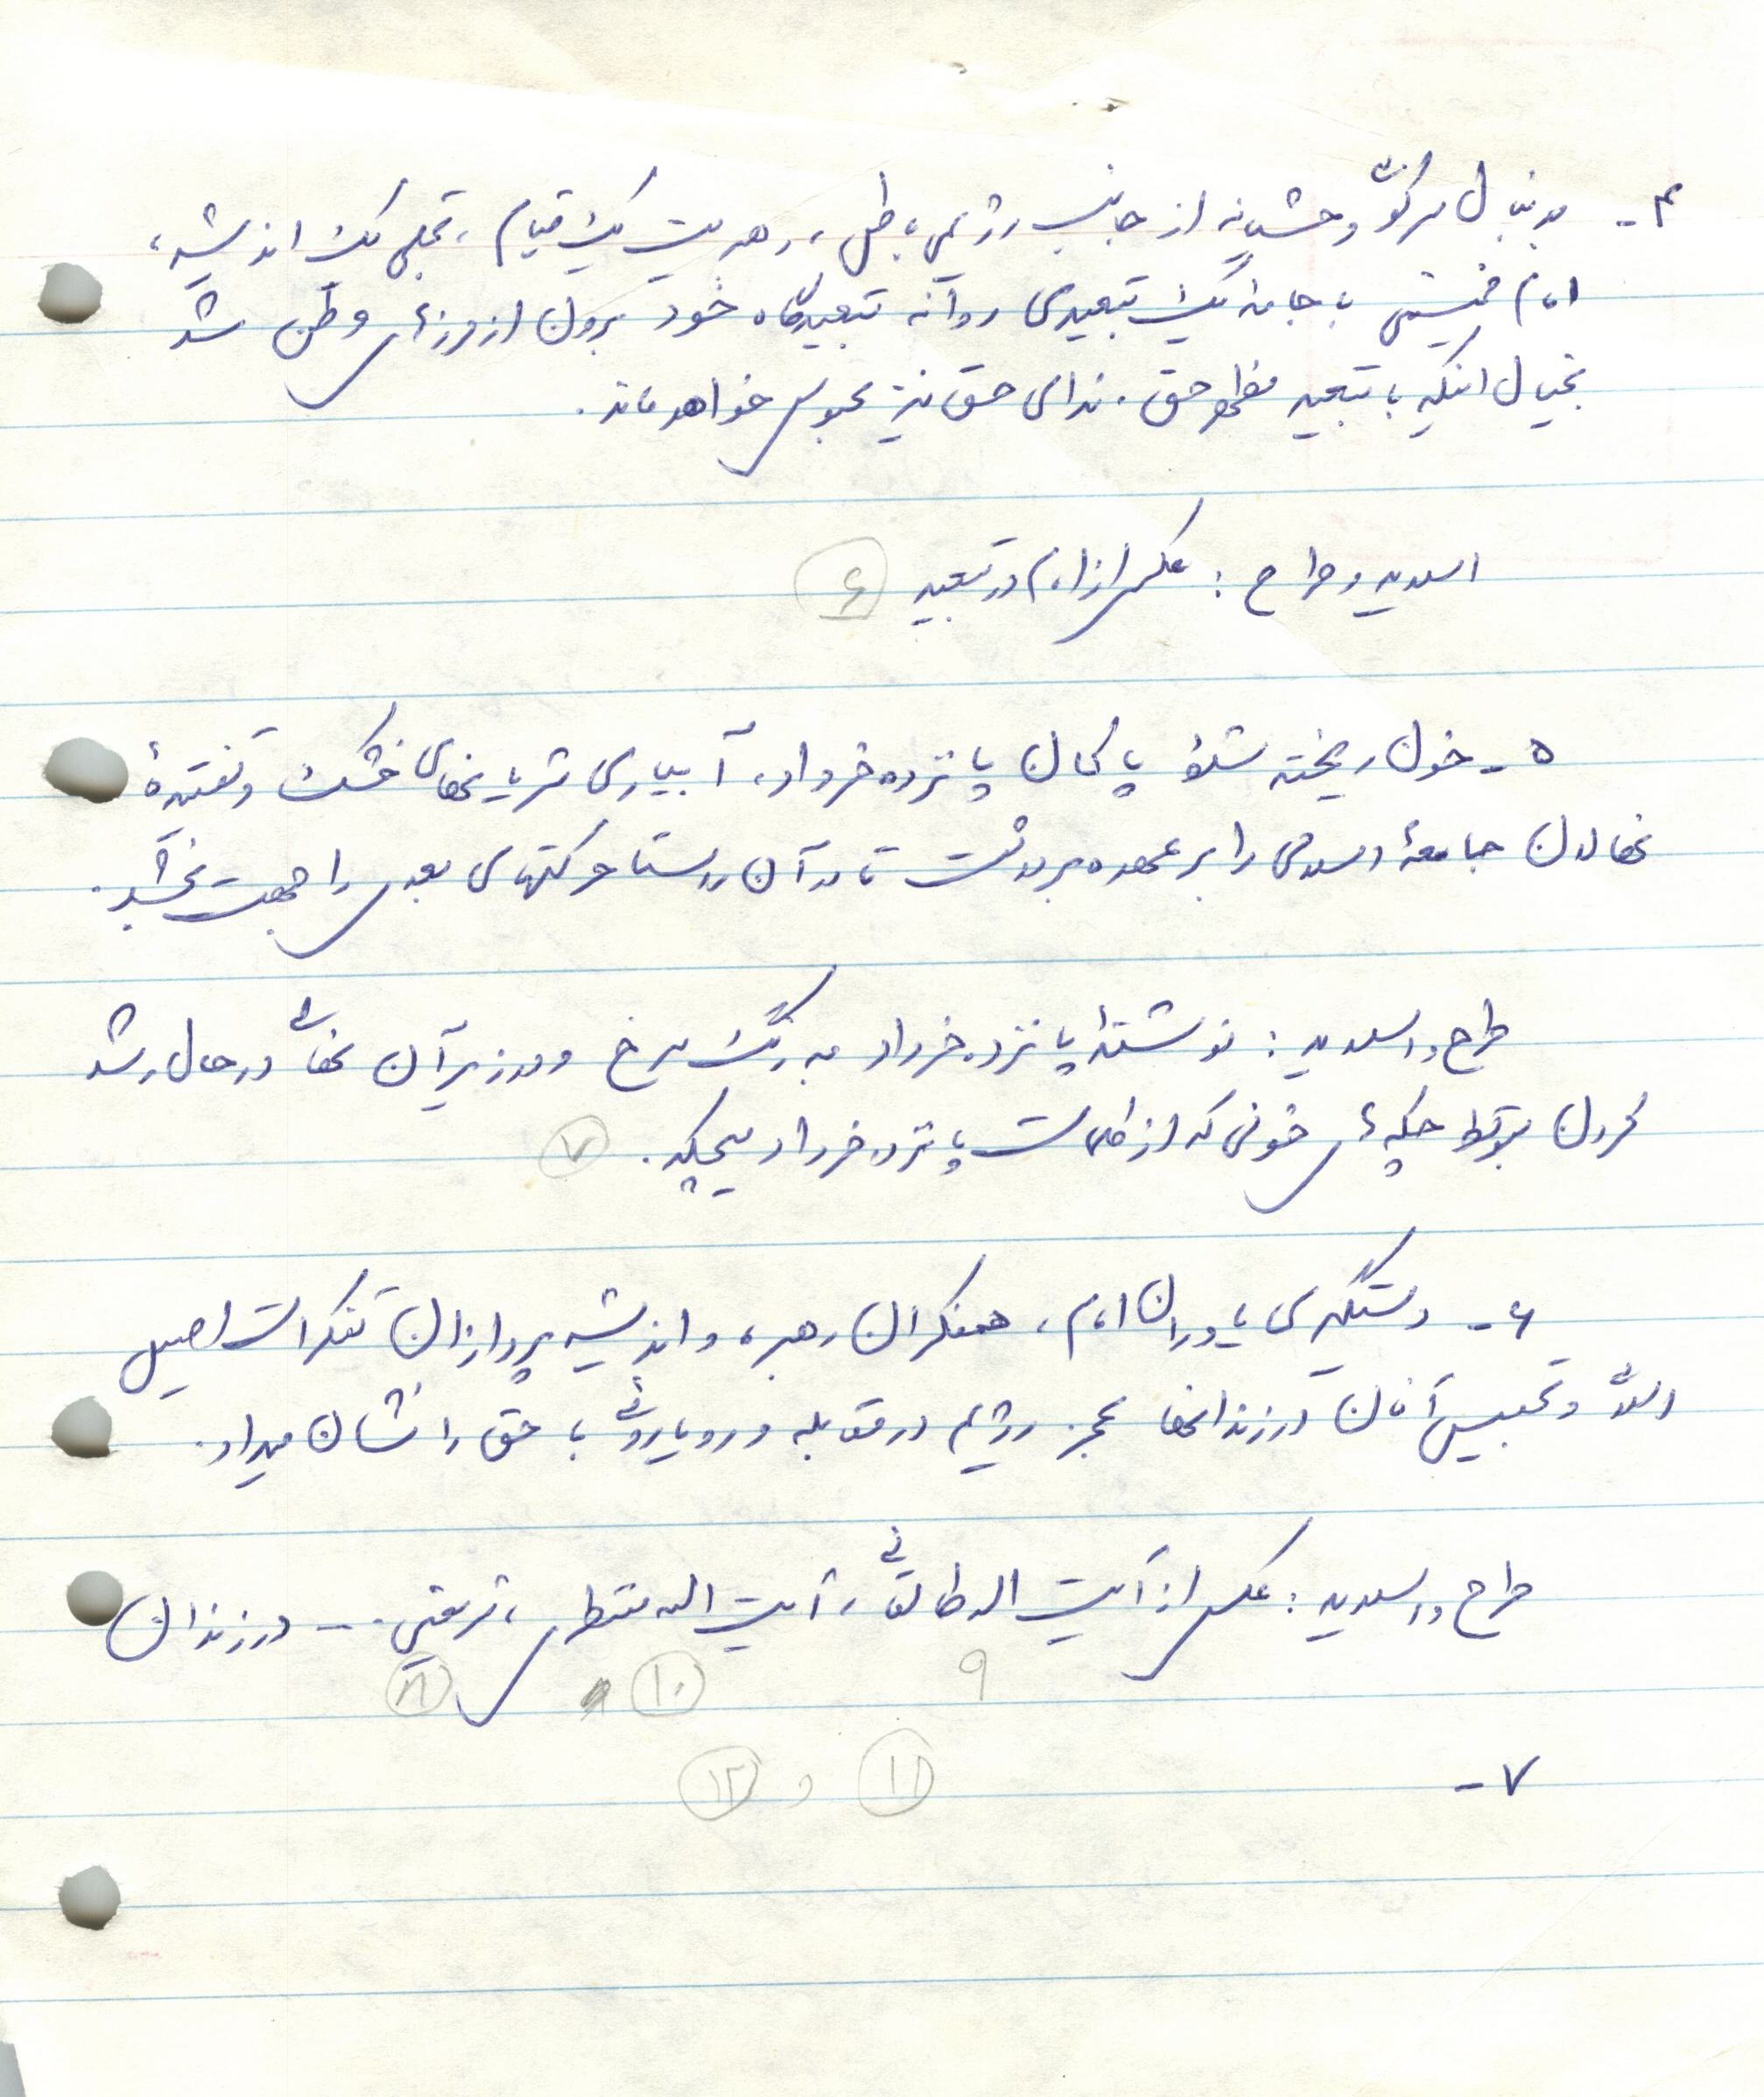 ۴- بدنبال سرکوبی وحشیانه از جانب رژیمی باطل، رهبریت یک قیام، تجلی یک اندیشه،
امام خمینی با جامه یک تبعیدی روانه تبعیدگاه خود برون از مرزهای وطن شد
بخیال اینکه با تبعید مظهر حق، ندای حق نیز محبوس خواهد ماند.
اسلاید و طرح : عکسی از امام در تبعید ۶
۵- خون ریخته شده پاکان پانزده خرداد، آبیاری شریانهای خشک و تفتیدۀ
نهالان جامعۀ اسلامی را بر عهده برداشت تا در آن راستا حرکتهای بعدی را جهت بخشد.
طرح و اسلاید : نوشته پانزده خرداد به رنگ سرخ و در زیر آن نهالی در حال رشد
کردن توسط چکه‌های خونی که از کلمات پانزده خرداد میچکد. ۷
۶- دستگیری یاوران امام، همفکران رهبر، و اندیشه پردازان تفکرات اصیل
الله و تحبیس آنان در زندانها عجز رژیم در مقابله و رویاروئی با حق را نشان میداد.
طرح و اسلاید : عکسی از آیت اله طالقانی، آیت اله منتظری، شریعتی... در زندان
۹ ۱۰ ۸
۷- ۱۱ و ۱۲